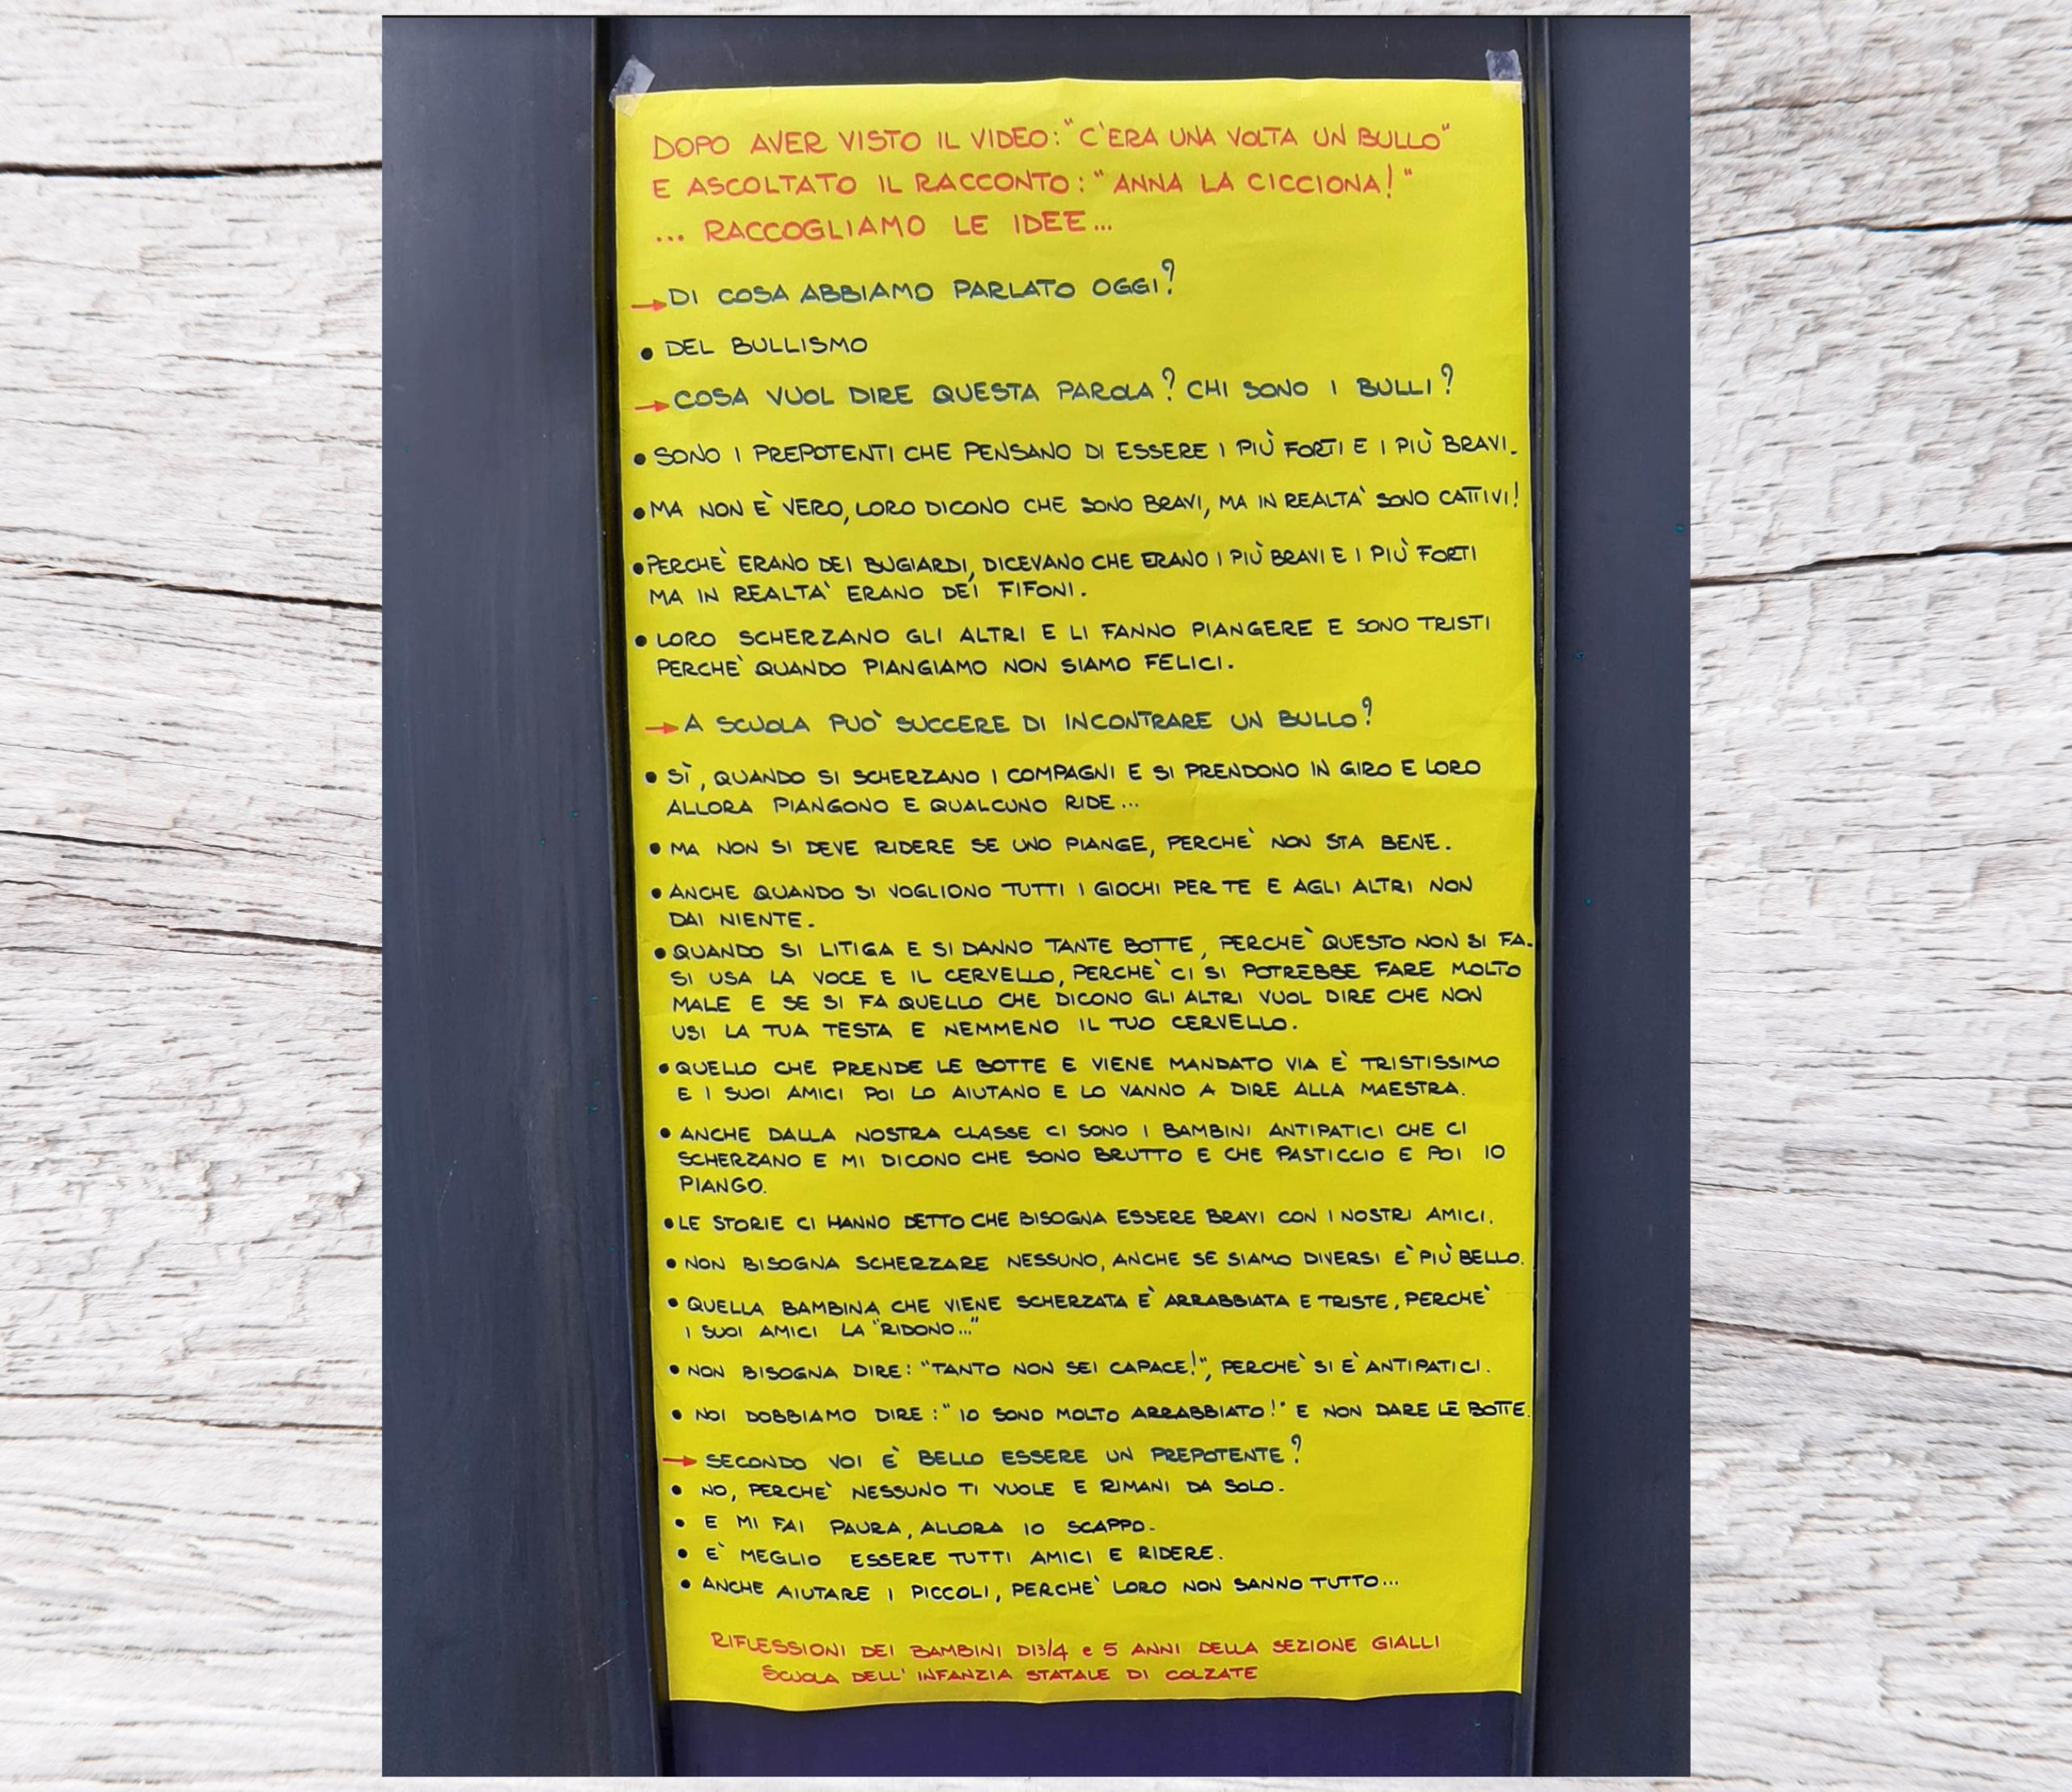 DOPO AVER VISTO IL VIDEO: "C'ERA UNA VOLTA UN BULLO"
E ASCOLTATO IL RACCONTO: "ANNA LA CICCIONA!"
... RACCOGLIAMO LE IDEE...
→ DI COSA ABBIAMO PARLATO OGGI?
• DEL BULLISMO
→ COSA VUOL DIRE QUESTA PAROLA? CHI SONO I BULLI?
• SONO I PREPOTENTI CHE PENSANO DI ESSERE I PIÙ FORTI E I PIÙ BRAVI.
• MA NON È VERO, LORO DICONO CHE SONO BRAVI, MA IN REALTA' SONO CATTIVI!
• PERCHÈ ERANO DEI BUGIARDI, DICEVANO CHE ERANO I PIÙ BRAVI E I PIÙ FORTI
MA IN REALTA' ERANO DEI FIFONI.
• LORO SCHERZANO GLI ALTRI E LI FANNO PIANGERE E SONO TRISTI
PERCHE' QUANDO PIANGIAMO NON SIAMO FELICI.
→ A SCUOLA PUO' SUCCERE DI INCONTRARE UN BULLO?
• SÌ, QUANDO SI SCHERZANO I COMPAGNI E SI PRENDONO IN GIRO E LORO
ALLORA PIANGONO E QUALCUNO RIDE...
• MA NON SI DEVE RIDERE SE UNO PIANGE, PERCHE' NON STA BENE.
• ANCHE QUANDO SI VOGLIONO TUTTI I GIOCHI PER TE E AGLI ALTRI NON
DAI NIENTE.
• QUANDO SI LITIGA E SI DANNO TANTE BOTTE, PERCHE' QUESTO NON SI FA.
SI USA LA VOCE E IL CERVELLO, PERCHE' CI SI POTREBBE FARE MOLTO
MALE E SE SI FA QUELLO CHE DICONO GLI ALTRI VUOL DIRE CHE NON
USI LA TUA TESTA E NEMMENO IL TUO CERVELLO.
• QUELLO CHE PRENDE LE BOTTE E VIENE MANDATO VIA E' TRISTISSIMO
E I SUOI AMICI POI LO AIUTANO E LO VANNO A DIRE ALLA MAESTRA.
• ANCHE DALLA NOSTRA CLASSE CI SONO I BAMBINI ANTIPATICI CHE CI
SCHERZANO E MI DICONO CHE SONO BRUTTO E CHE PASTICCIO E POI IO
PIANGO.
• LE STORIE CI HANNO DETTO CHE BISOGNA ESSERE BRAVI CON I NOSTRI AMICI.
• NON BISOGNA SCHERZARE NESSUNO, ANCHE SE SIAMO DIVERSI E' PIÙ BELLO.
• QUELLA BAMBINA CHE VIENE SCHERZATA E' ARRABBIATA E TRISTE, PERCHE'
I SUOI AMICI LA "RIDONO..."
• NON BISOGNA DIRE: "TANTO NON SEI CAPACE!", PERCHE' SI E' ANTIPATICI.
• NOI DOBBIAMO DIRE: "IO SONO MOLTO ARRABBIATO!" E NON DARE LE BOTTE.
→ SECONDO VOI E' BELLO ESSERE UN PREPOTENTE?
• NO, PERCHE' NESSUNO TI VUOLE E RIMANI DA SOLO.
• E MI FAI PAURA, ALLORA IO SCAPPO.
• E' MEGLIO ESSERE TUTTI AMICI E RIDERE.
• ANCHE AIUTARE I PICCOLI, PERCHE' LORO NON SANNO TUTTO...
RIFLESSIONI DEI BAMBINI DI 3/4 e 5 ANNI DELLA SEZIONE GIALLI
SCUOLA DELL'INFANZIA STATALE DI COLZATE